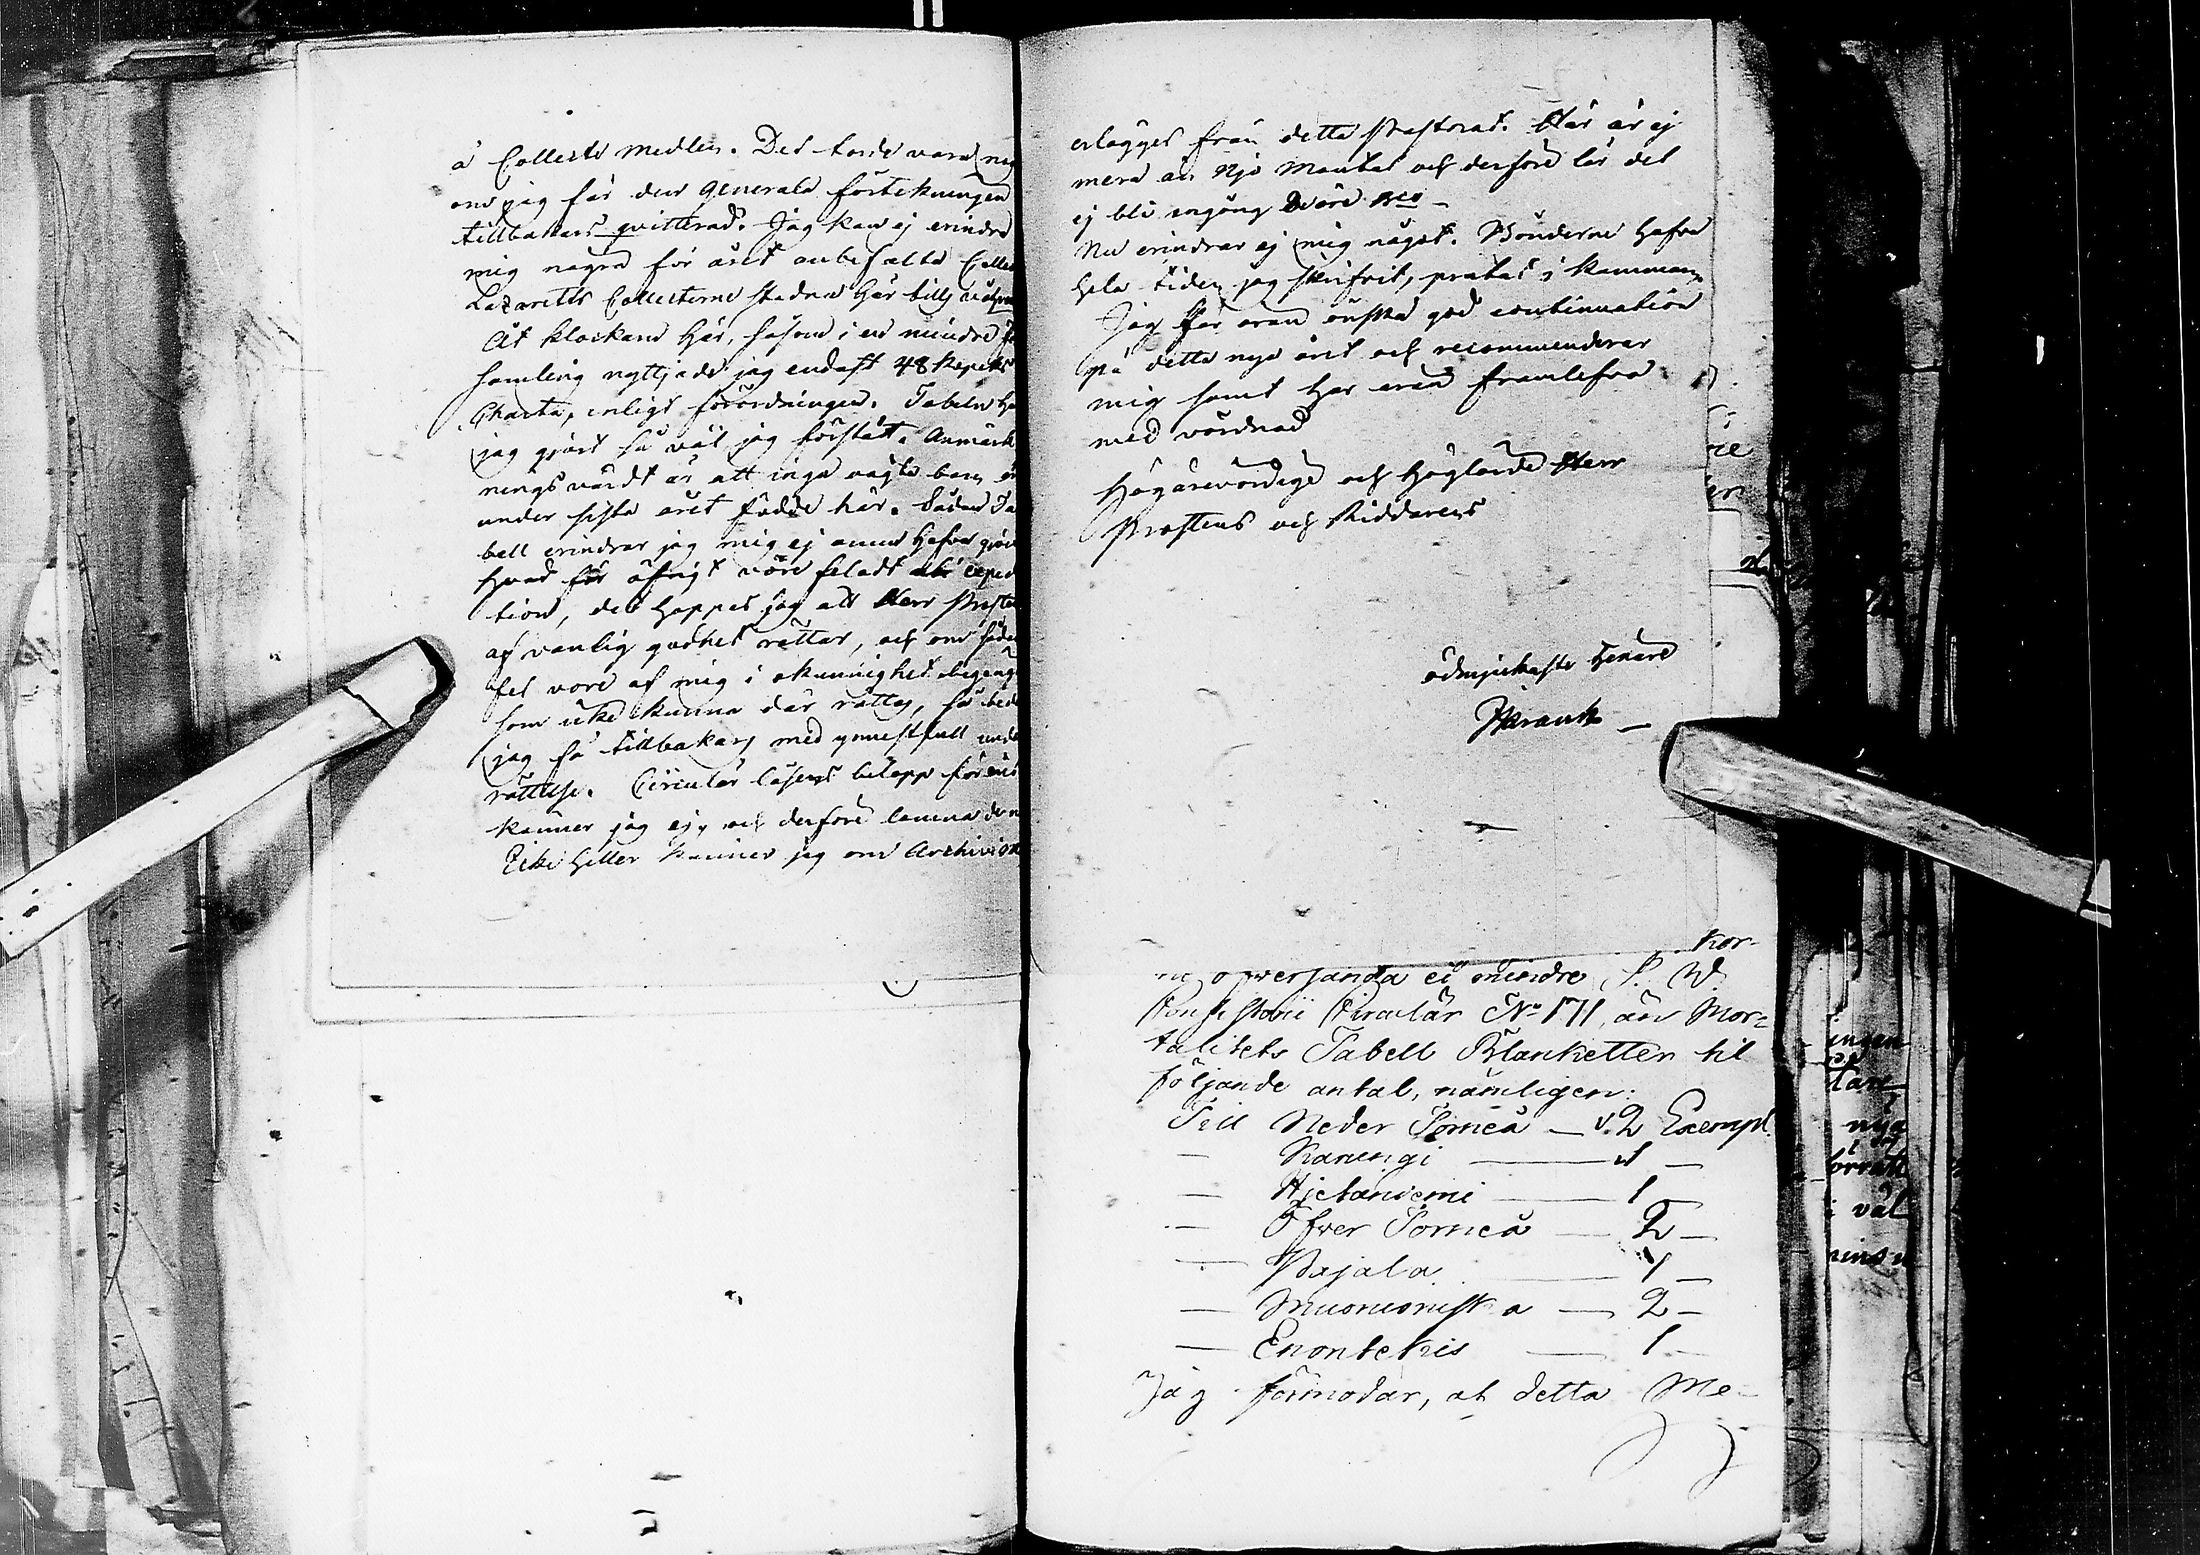 å Collecte medlen. Det torde vara nog
om jag får den Generala förtekningen
tillbakars qvitterad. Jag kan ej erindra
mig några för året anbefalta Collec
Lazaretts Collecterne stadna här
At klockaren här, såsom i en mindre
samling nyttjade jag endast 48 kopeks
Charta, enligt förordningen. Tabeln ha
jag gjort så väl jag förstått. Anmärk
nings värdt är att inga oägta barn är
under sista året födde här. Sådan Ta
bell erindrar jag mig ej annars hafva gjort
hvad för öfrigt vore feladt
tion, det hoppas jag att Herr Prosten
af vanlig godhet rättar, och om sådan
fel vore af mig i okunnighet begång
som icke kunna där rättas, så beder
jag få tillbakars med ynnestfull unde
rättelse. Circulär lösens belopp för
känner jag ej, och derföre lemnar den
Icke heller känner jag om Archivi
erlägges från detta Pastorat. Här är ej
mera än njo Mantal och derföre lär det
ej bli
Nu erindrar ej mig något. Bönderne hafva
hela tiden jag skrifvit, pratat i kammarn
Jag får äran önska god continuation
på detta nya året och recommenderar
mig samt har äran framlefva
med vördnad
Högärevördige och Höglärde Herr
Prostens och Riddarens
ödmjukaste tjenare
Kor-
öfversända ei mindre P. W.
Consistorii Circulär No 171, än Mor=
talitets Tabell Blanketter til
följande antal, nämligen:
Till Neder Torneå — 2 Exempl.
— Karungi — 1 —
— Hjetaniemi — 1 —
— Öfver Torneå — 2 —
— Pajala — 1 —
— Muonioniska — 2 —
— Enontekis — 1 —
Jag förmodar, at detta Me-
ingen
nya
förrätt
väl